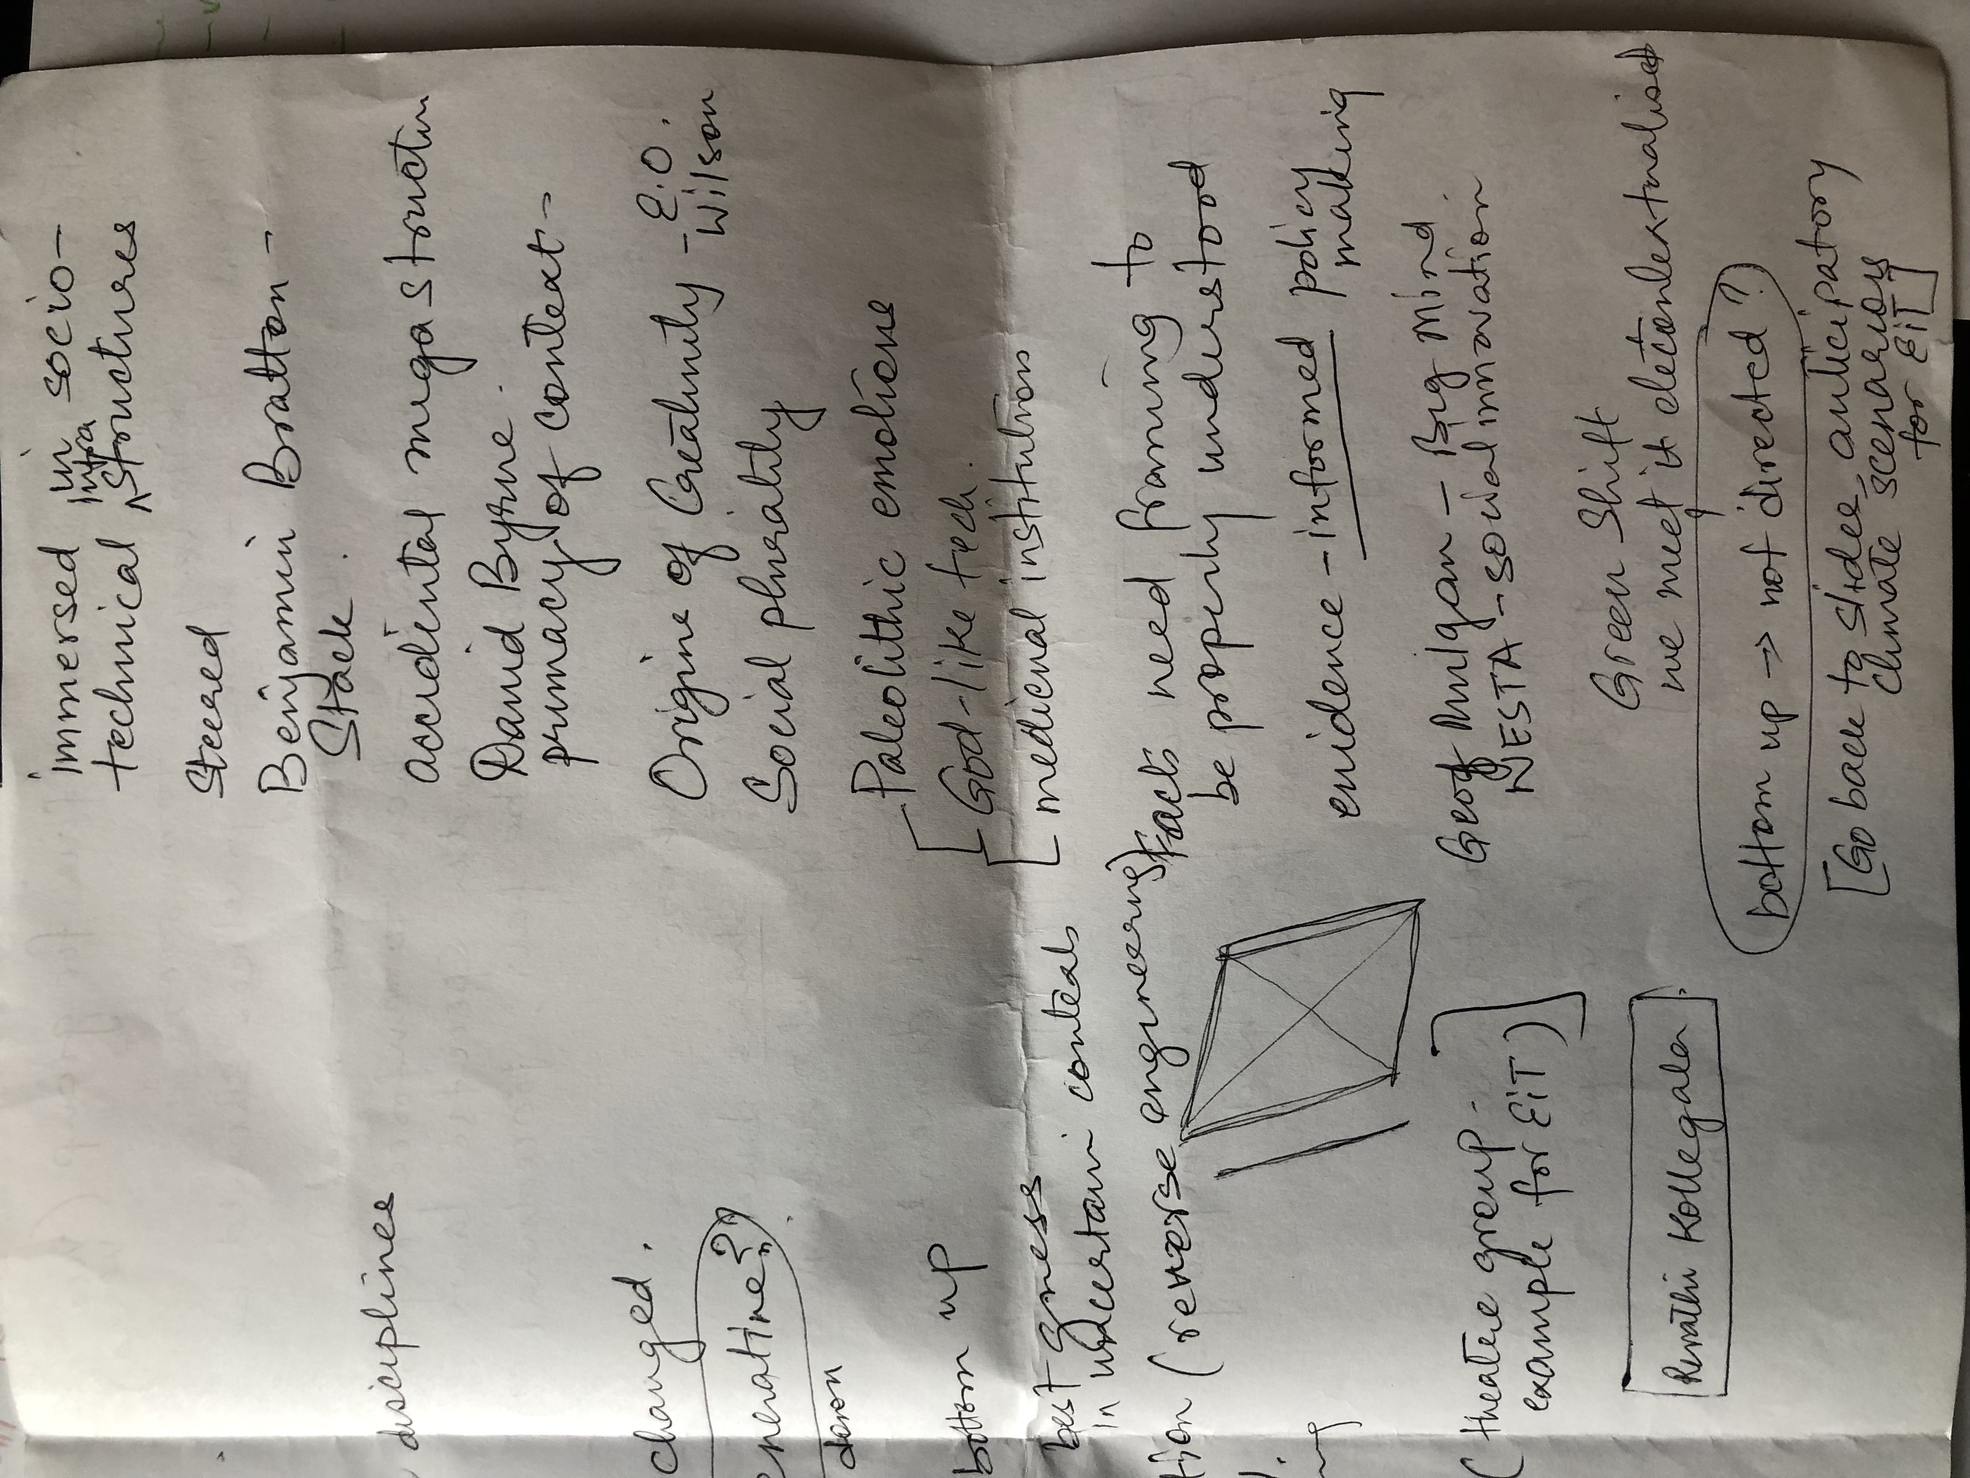 disciplines
changed.
nerative??
down
bottom up
best guess
in uncertain contexts
tion (reverse engineering)
(theatre group -
example for EiT)
Revathi Kollegala
immersed in socio-
technical infra structures
Steered
Benjamin Bratton -
Stack.
accidental mega structur
David Byrne.
primacy of context -
Origins of Creativity - E.O. Wilson
Social plurality
[Paleolithic emotions
[God-like tech.
[medieval institutions
facts need framing to
be properly understood
evidence-informed policy making
Geoff Mulgan - Big Mind.
NESTA - social innovation
Green Shift
we meet it decontextualised
bottom up → not directed?
[Go back to slides, anticipatory
climate scenarios
for EiT]